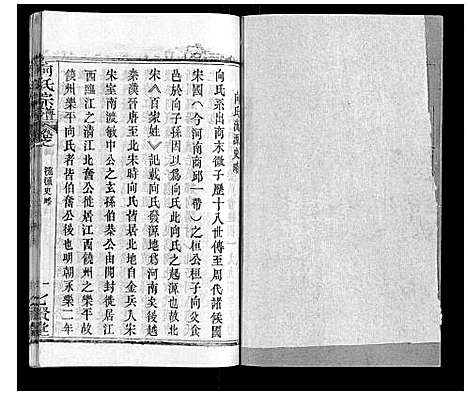 向氏源流史略
向氏系出商末微子歷十八世傳至周代諸侯國
宋國（今河南商邱一帶）之桓公桓子向父食
邑於向子孫因以為向氏此向氏之起源也故北
宋《百家姓》記載向氏發源地為河南矣後越
秦漢晉唐至北宋時向氏皆居北地自金兵入宋
宋室南渡敏中公之玄孫伯奮公由開封徙居江
西臨江之清江北奮公徙居江西饒州之樂平故
饒州樂平向氏者皆伯奮公也明朝永樂二年
向氏宗譜
源流史略
一
七賢堂